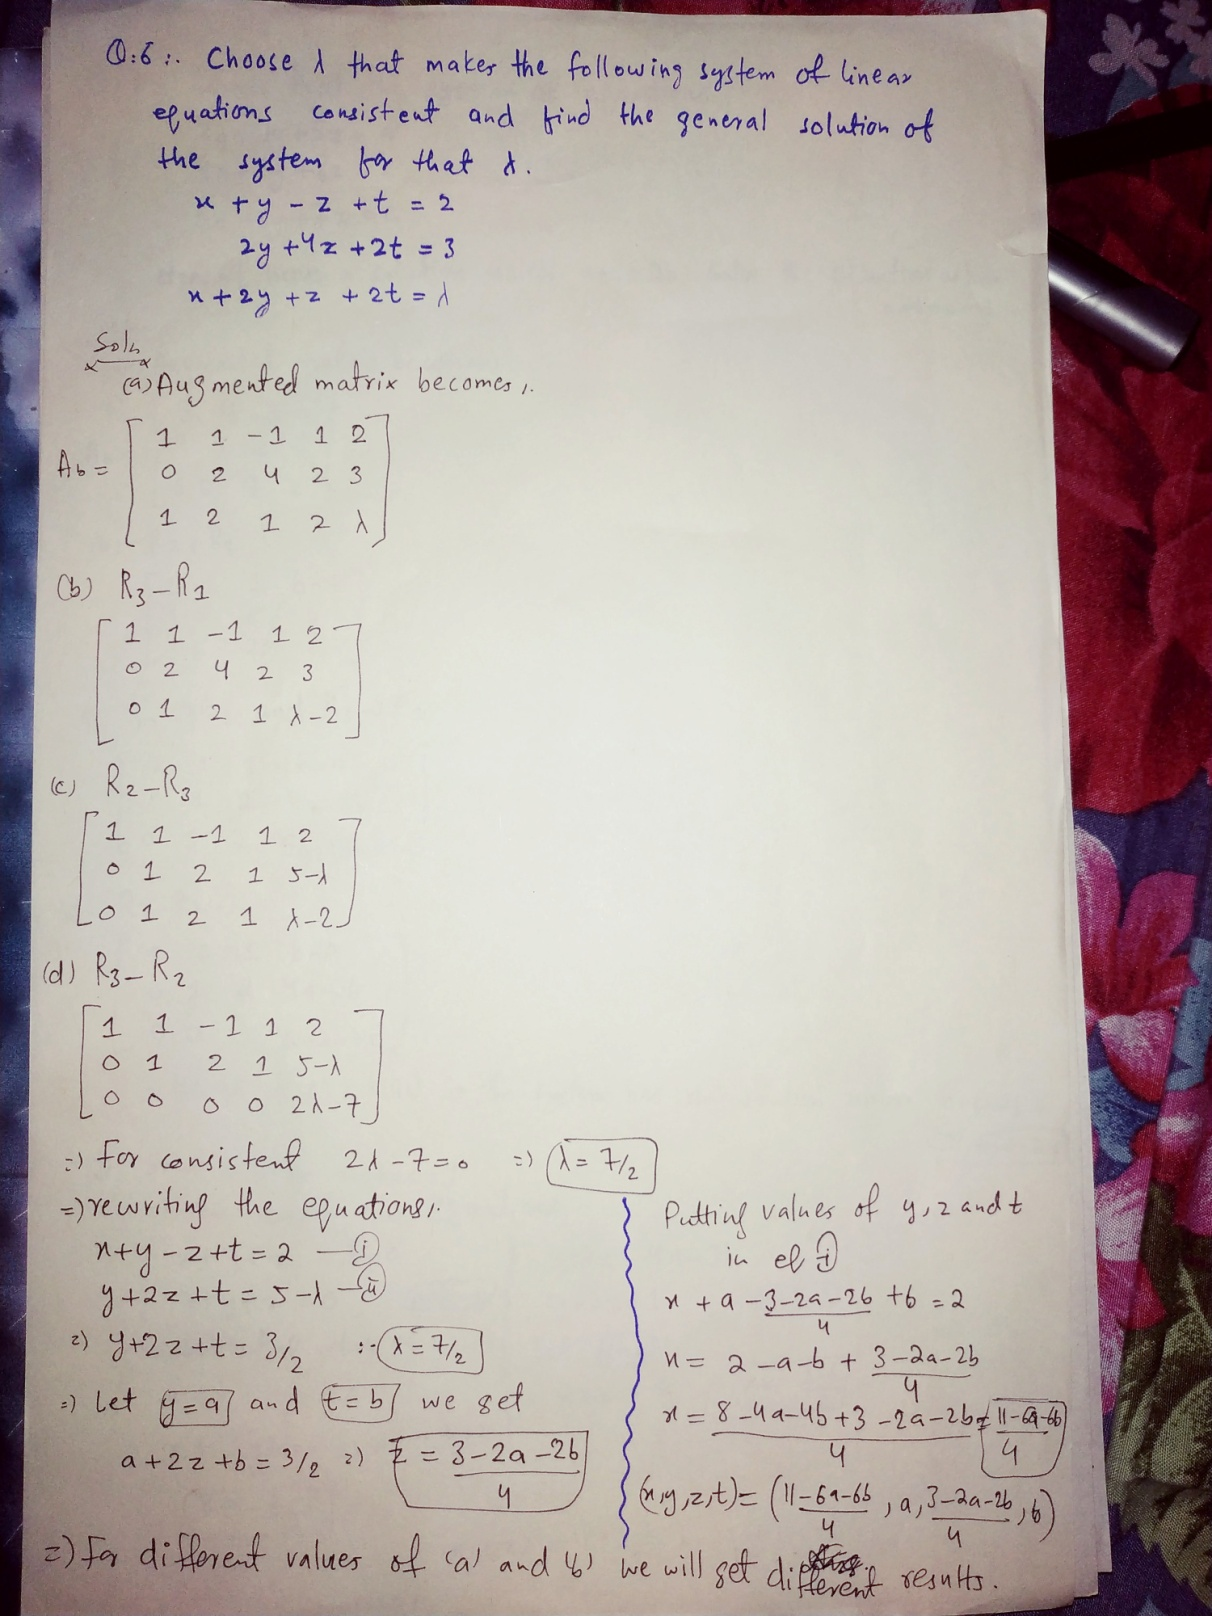 Q:6:. Choose λ that makes the following system of linear
equations consistent and find the general solution of
the system for that λ.
x + y - z + t = 2
2y + 4z + 2t = 3
x + 2y + z + 2t = λ
Soln
(a) Augmented matrix becomes,.
1 1 -1 1 2
Ab = 0 2 4 2 3
1 2 1 2 λ
(b) R3 - R1
1 1 -1 1 2
0 2 4 2 3
0 1 2 1 λ-2
(c) R2 - R3
1 1 -1 1 2
0 1 2 1 5-λ
0 1 2 1 λ-2
(d) R3 - R2
1 1 -1 1 2
0 1 2 1 5-λ
0 0 0 0 2λ-7
=) For consistent 2λ - 7 = 0 =) λ = 7/2
=) rewriting the equations,.
x + y - z + t = 2 — (i)
y + 2z + t = 5 - λ — (ii)
=) y + 2z + t = 3/2 ∵ λ = 7/2
=) Let y = a and t = b we get
a + 2z + b = 3/2 =) z = 3-2a-2b
4
Putting values of y, z and t
in eq (i)
x + a - 3-2a-2b + b = 2
4
x = 2 - a - b + 3-2a-2b
4
x = 8-4a-4b+3-2a-2b = 11-6a-6b
4 4
(x,y,z,t) = (11-6a-6b , a, 3-2a-2b , b)
4 4
=) For different values of 'a' and 'b' we will get different results.